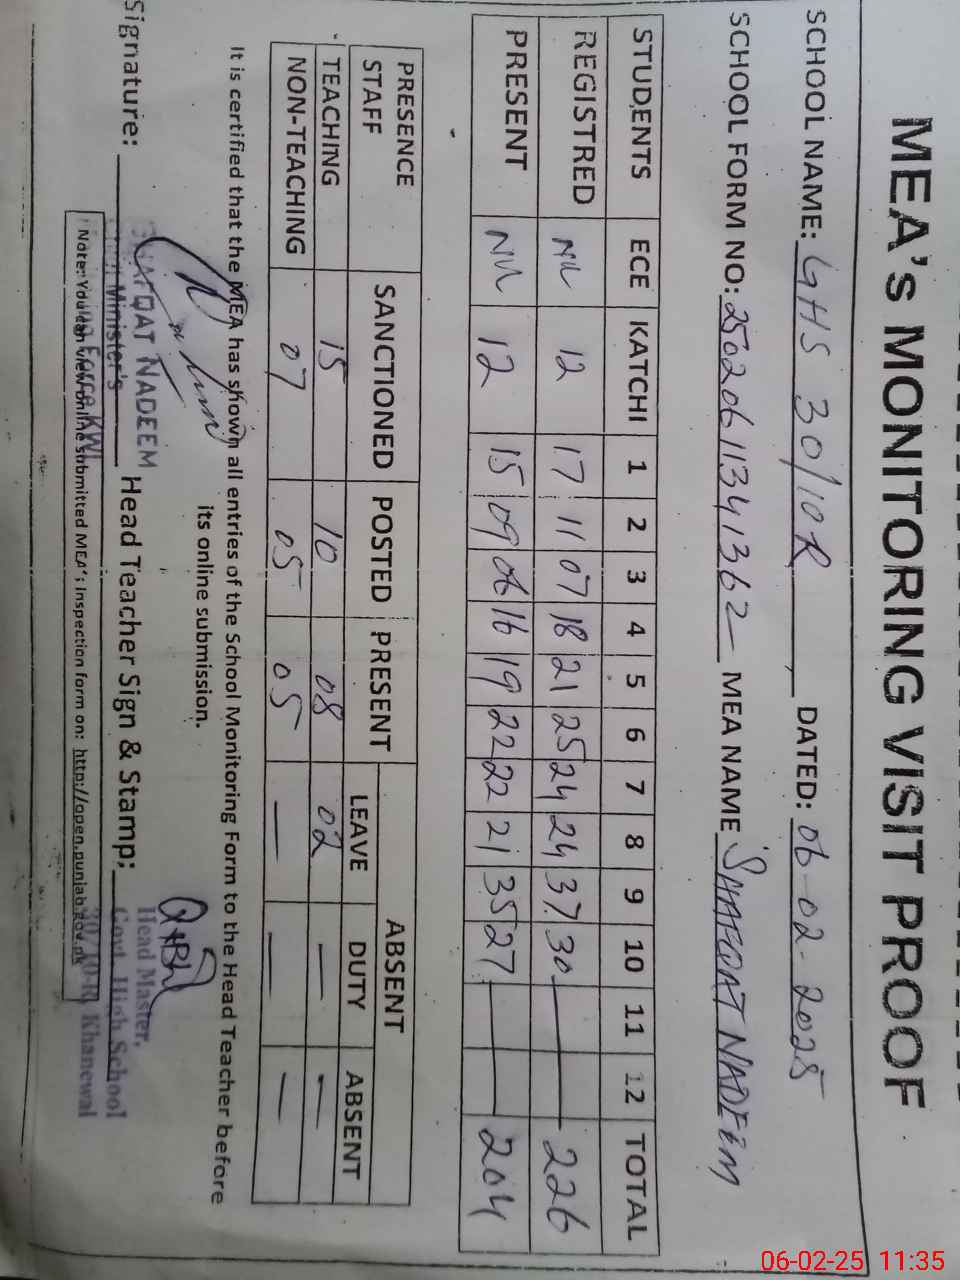 MEA's MONITORING VISIT PROOF
SCHOOL NAME: GHS 30/10R, DATED: 06-02-2025
SCHOOL FORM NO: 25020611341362 MEA NAME SHAFQAT NADEEM
STUDENTS ECE KATCHI 1 2 3 4 5 6 7 8 9 10 11 12 TOTAL
REGISTRED Nil 12 17 11 07 18 21 25 24 24 37 30 — 226
PRESENT Nil 12 15 09 06 16 19 22 22 21 35 27 — 204
PRESENCE STAFF SANCTIONED POSTED PRESENT ABSENT
LEAVE DUTY ABSENT
TEACHING 15 10 08 02 — —
NON-TEACHING 07 05 05 — — —
It is certified that the MEA has shown all entries of the School Monitoring Form to the Head Teacher before
its online submission.
Signature: Head Teacher Sign & Stamp:
SHAFQAT NADEEM
Minister's
Force KWL
Head Master,
Govt. High School
30/10-R Khanewal
Note: You can view online submitted MEA's Inspection form on: http://open.punjab.gov.pk
06-02-25 11:35